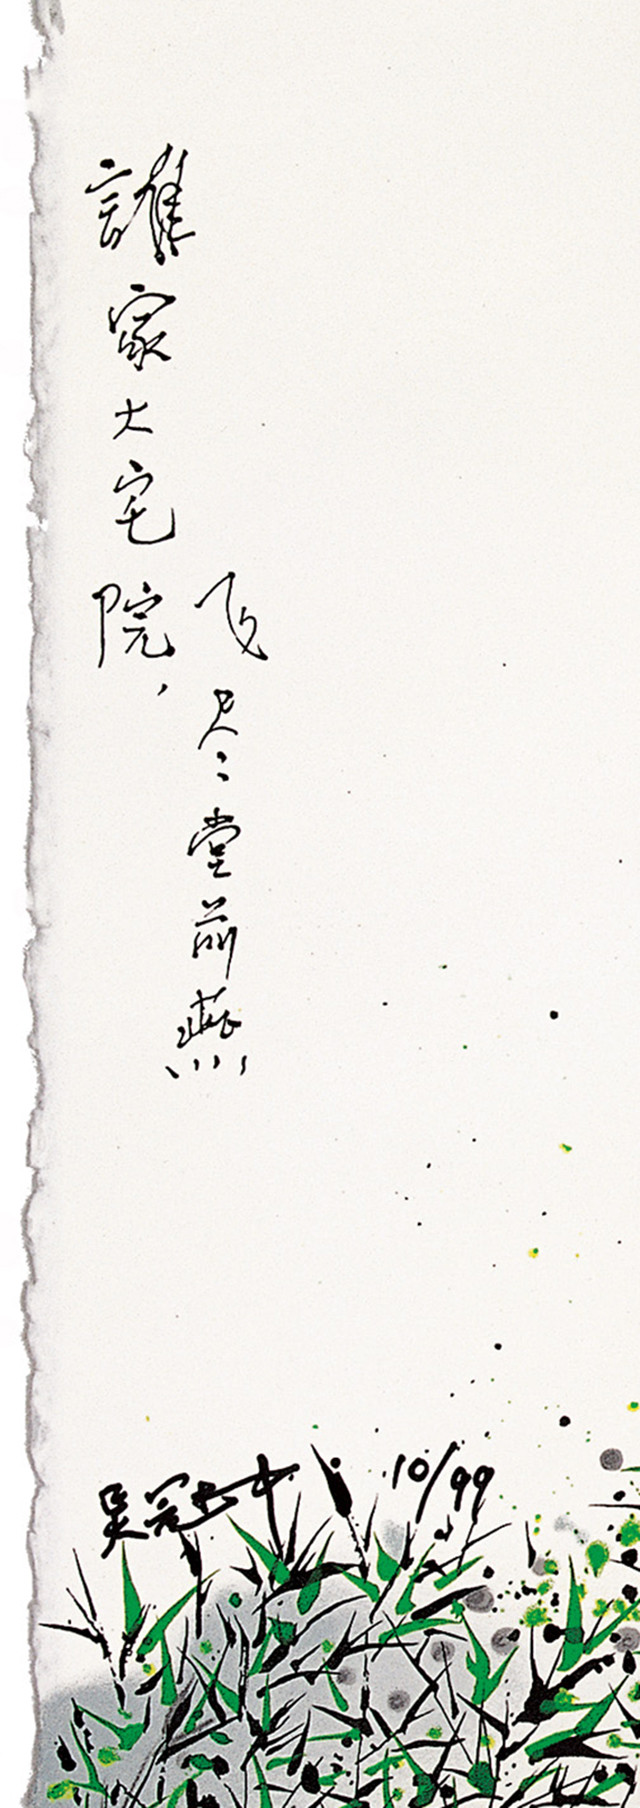 誰家大宅院，
飞尽堂前燕
吴冠中 10/99